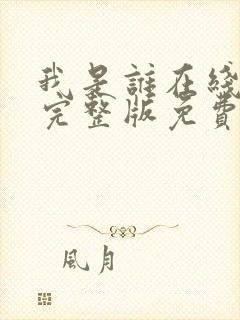 我是誰在綫
完整版免費
風月